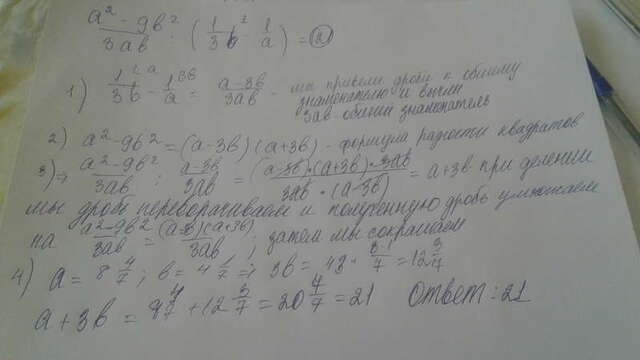 a² - 9b² / 3ab : ( 1/3b - 1/a ) = a
1) 1/3b - 1/a = a-3b / 3ab - мы привели дроби к общему
знаменателю и вычли
3ab - общий знаменатель
2) a² - 9b² = (a-3b)(a+3b) - формула разности квадратов
3) ⇒ a² - 9b² / 3ab : a-3b / 3ab = (a-3b)·(a+3b)·3ab / 3ab·(a-3b) = a+3b при делении
мы дробь переворачиваем и полученную дробь умножаем
на a² - 9b² / 3ab = (a-3b)(a+3b) / 3ab ; затем мы сокращаем
4) a = 8 4/7 ; b = 4 1/7 ⇒ 3b = 4·3 3·1/7 = 12 3/7
a + 3b = 8 4/7 + 12 3/7 = 20 7/7 = 21 Ответ: 21